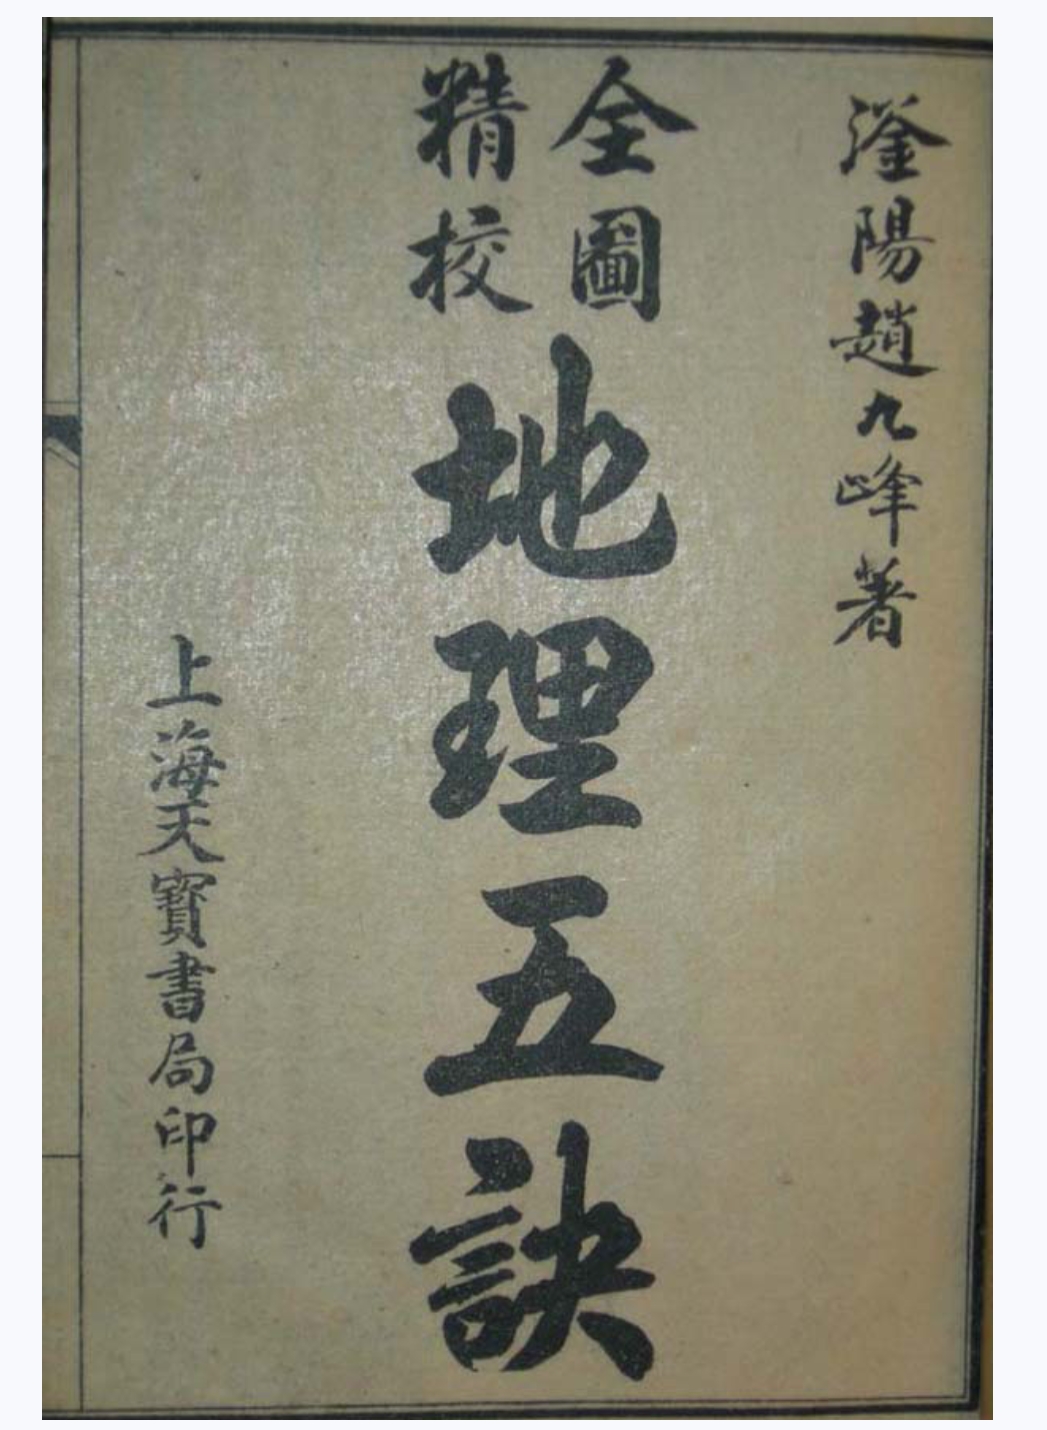 滏陽趙九峰著
全圖
精校
地理五訣
上海天寶書局印行